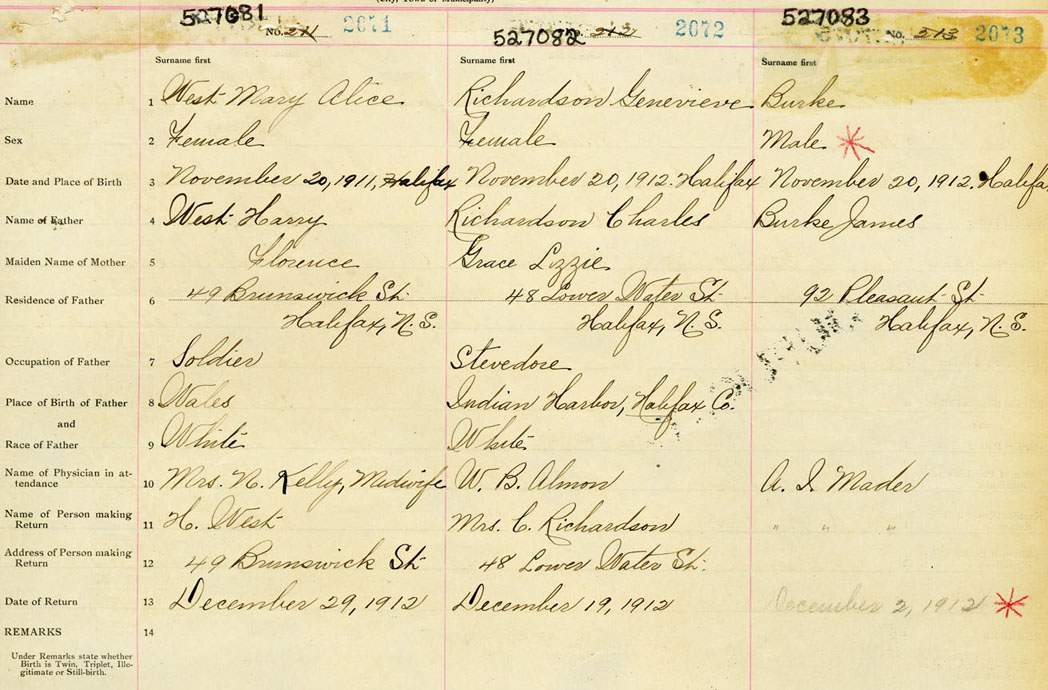 (City, Town or Municipality)
527081 No. 211 2071
527082 No. 212 2072
527083 No. 213 2073
Surname first Surname first Surname first
Name 1 West Mary Alice Richardson Genevieve Burke
Sex 2 Female Female Male
Date and Place of Birth 3 November 20, 1911, Halifax November 20, 1912. Halifax November 20, 1912. Halifa
Name of Father 4 West Harry Richardson Charles Burke James
Maiden Name of Mother 5 Florence Grace Lizzie
Residence of Father 6 49 Brunswick St. 48 Lower Water St. 92 Pleasant St.
Halifax, N.S. Halifax, N.S. Halifax, N.S.
Occupation of Father 7 Soldier Stevedore
Place of Birth of Father 8 Wales Indian Harbor, Halifax Co.
and
Race of Father 9 White White
Name of Physician in at-
tendance 10 Mrs. N. Kelly, Midwife W. B. Almon A. I. Mader
Name of Person making
Return 11 H. West Mrs. C. Richardson " " "
Address of Person making
Return 12 49 Brunswick St. 48 Lower Water St.
Date of Return 13 December 29, 1912 December 19, 1912 December 2, 1912
REMARKS 14
Under Remarks state whether
Birth is Twin, Triplet, Ille-
gitimate or Still-birth.